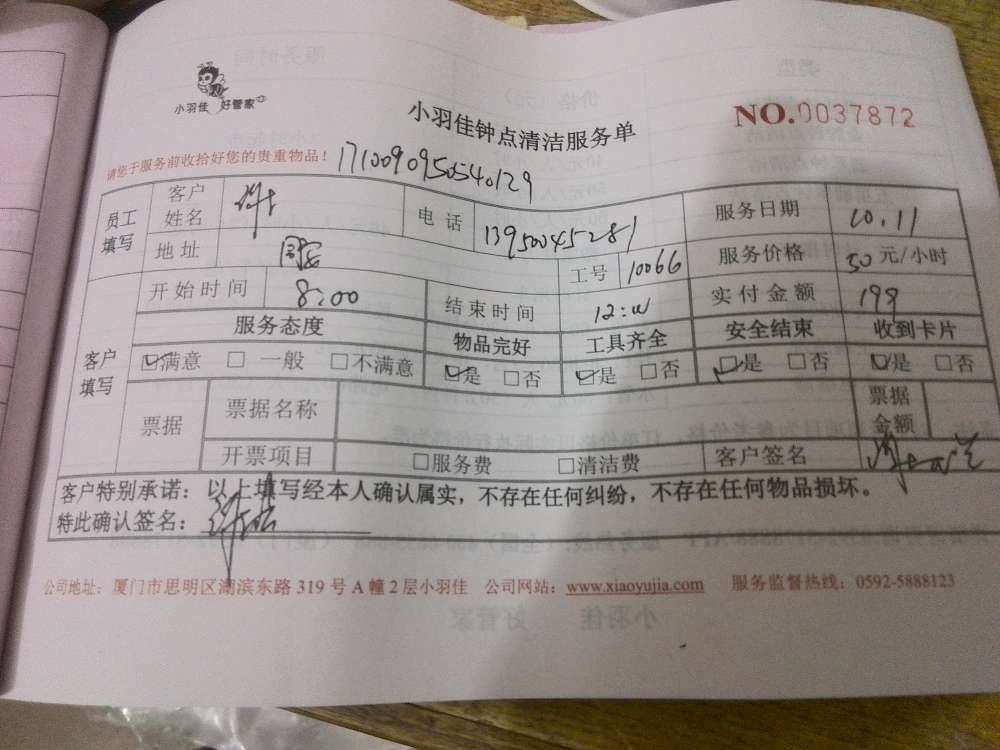 小羽佳 好管家
小羽佳钟点清洁服务单
NO.0037872
请您于服务前收拾好您的贵重物品！ 171009095054 0129
员工填写 客户姓名 电话 13950045281 服务日期 10.11
地址 同安 工号 10066 服务价格 50元/小时
客户填写 开始时间 8:00 结束时间 12:00 实付金额 199
服务态度 物品完好 工具齐全 安全结束 收到卡片
满意 一般 不满意 是 否 是 否 是 否 是 否
票据 票据名称 票据金额
开票项目 服务费 清洁费 客户签名
客户特别承诺：以上填写经本人确认属实，不存在任何纠纷，不存在任何物品损坏。
特此确认签名：
公司地址：厦门市思明区湖滨东路319号A幢2层小羽佳 公司网站：www.xiaoyujia.com 服务监督热线：0592-5888123